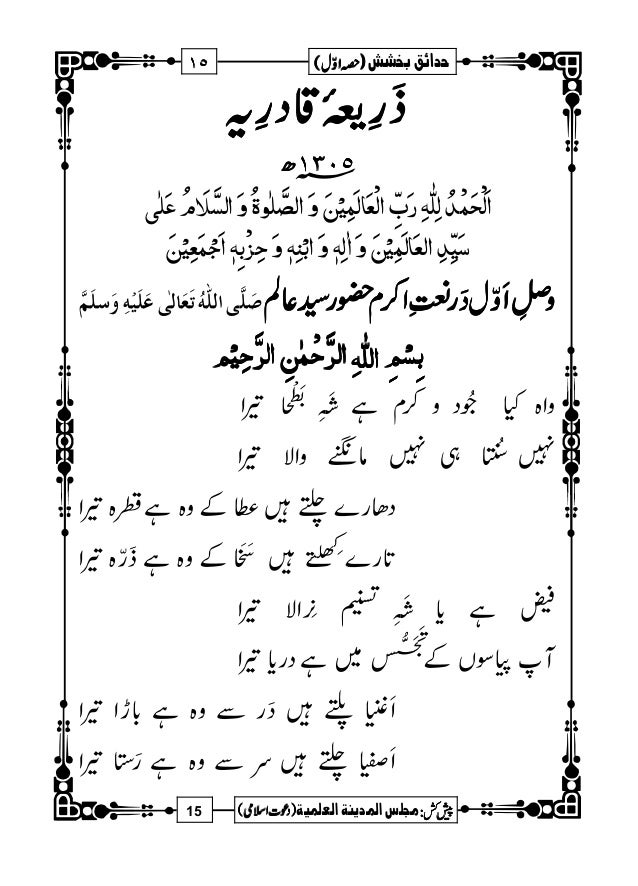 حدائقِ بخشش (حصہ اوّل)
۱۵
ذَرِیعۂ قادرِیہ
۱۳۰۵ھ
اَلْحَمْدُ لِلّٰهِ رَبِّ الْعَالَمِیْنَ وَ الصَّلٰوةُ وَ السَّلَامُ عَلٰی
سَیِّدِ الْعَالَمِیْنَ وَ اٰلِهٖ وَ ابْنِهٖ وَ حِزْبِهٖ اَجْمَعِیْنَ
وصلِ اَوّل دَر نعتِ اکرم حضور سید عالم صَلَّی اللّٰهُ تَعَالٰی عَلَیْهِ وَسَلَّمَ
بِسْمِ اللّٰهِ الرَّحْمٰنِ الرَّحِیْمِ
واہ کیا جُود و کرم ہے شَہِ بَطْحا تیرا
نہیں سُنتا ہی نہیں مانگنے والا تیرا
دھارے چلتے ہیں عطا کے وہ ہے قطرہ تیرا
تارے کِھلتے ہیں سَخَا کے وہ ہے ذَرّہ تیرا
فیض ہے یا شَہِ تسنیم نِرالا تیرا
آپ پیاسوں کے تَجَسُّس میں ہے دریا تیرا
اَغنیا پلتے ہیں دَر سے وہ ہے باڑا تیرا
اَصفیا چلتے ہیں سر سے وہ ہے رَستا تیرا
پیش کش: مجلس المدینۃ العلمیۃ (دعوتِ اسلامی)
15